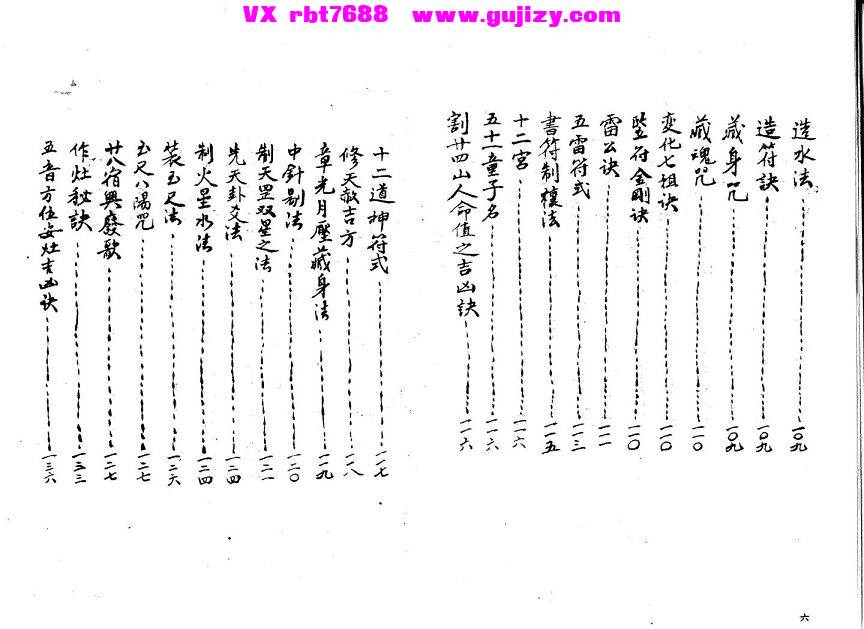 VX rbt7688 www.gujizy.com
造水法 一〇九
造符訣 一〇九
藏身咒 一〇九
藏魂咒 一一〇
变化七祖訣 一一〇
竖符金剛诀 一一〇
雷公诀 一一一
五雷符式 一一三
書符制禳法 一一五
十二宮 一一六
五十二童子名 一一六
割廿四山人命值之吉凶訣 一一六
十二道神符式 一一七
修天赦吉方 一一八
章光月壓藏身法 一一九
中針剔法 一二〇
制天罡双星之法 一二一
先天卦爻法 一二四
制火星水法 一二四
裝玉尺法 一二六
玉尺八湯咒 一二七
廿八宿興廢歌 一二七
作灶秘訣 一三三
五音方位安灶吉凶诀 一三六
六